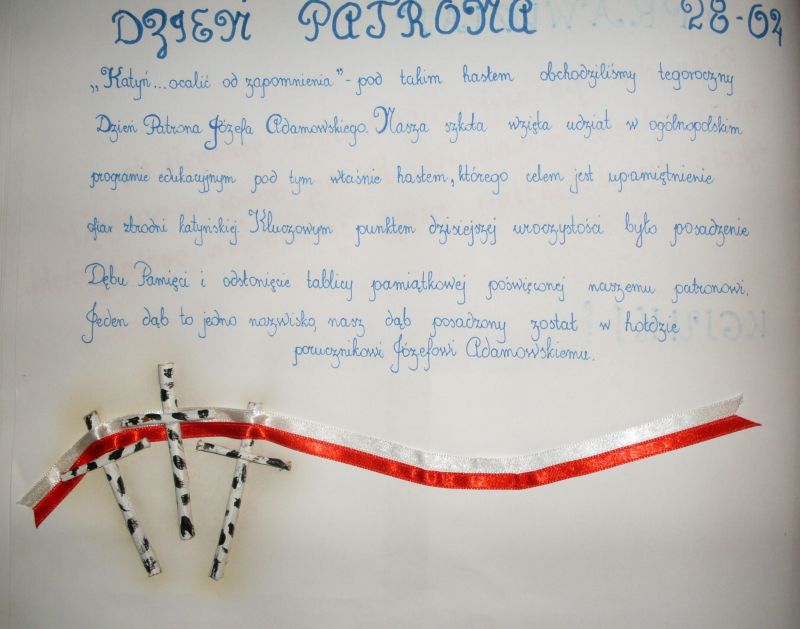 DZIEŃ PATRONA 28-04
„Katyń...ocalić od zapomnienia"-pod takim hasłem obchodziliśmy tegoroczny
Dzień Patrona Józefa Adamowskiego. Nasza szkoła wzięła udział w ogólnopolskim
programie edukacyjnym pod tym właśnie hasłem, którego celem jest upamiętnienie
ofiar zbrodni katyńskiej. Kluczowym punktem dzisiejszej uroczystości było posadzenie
Dębu Pamięci i odsłonięcie tablicy pamiątkowej poświęconej naszemu patronowi.
Jeden dąb to jedno nazwisko, nasz dąb posadzony został w hołdzie
porucznikowi Józefowi Adamowskiemu.